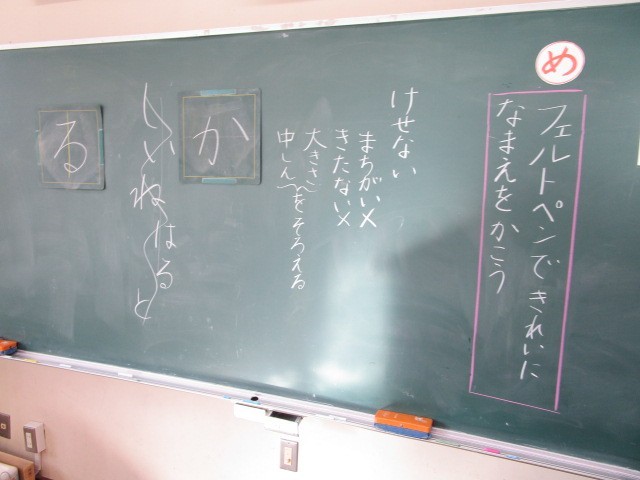 め
フェルトペンできれいに
なまえをかこう
けせない
まちがい×
きたない×
大きさ
中しん
をそろえる
か
る